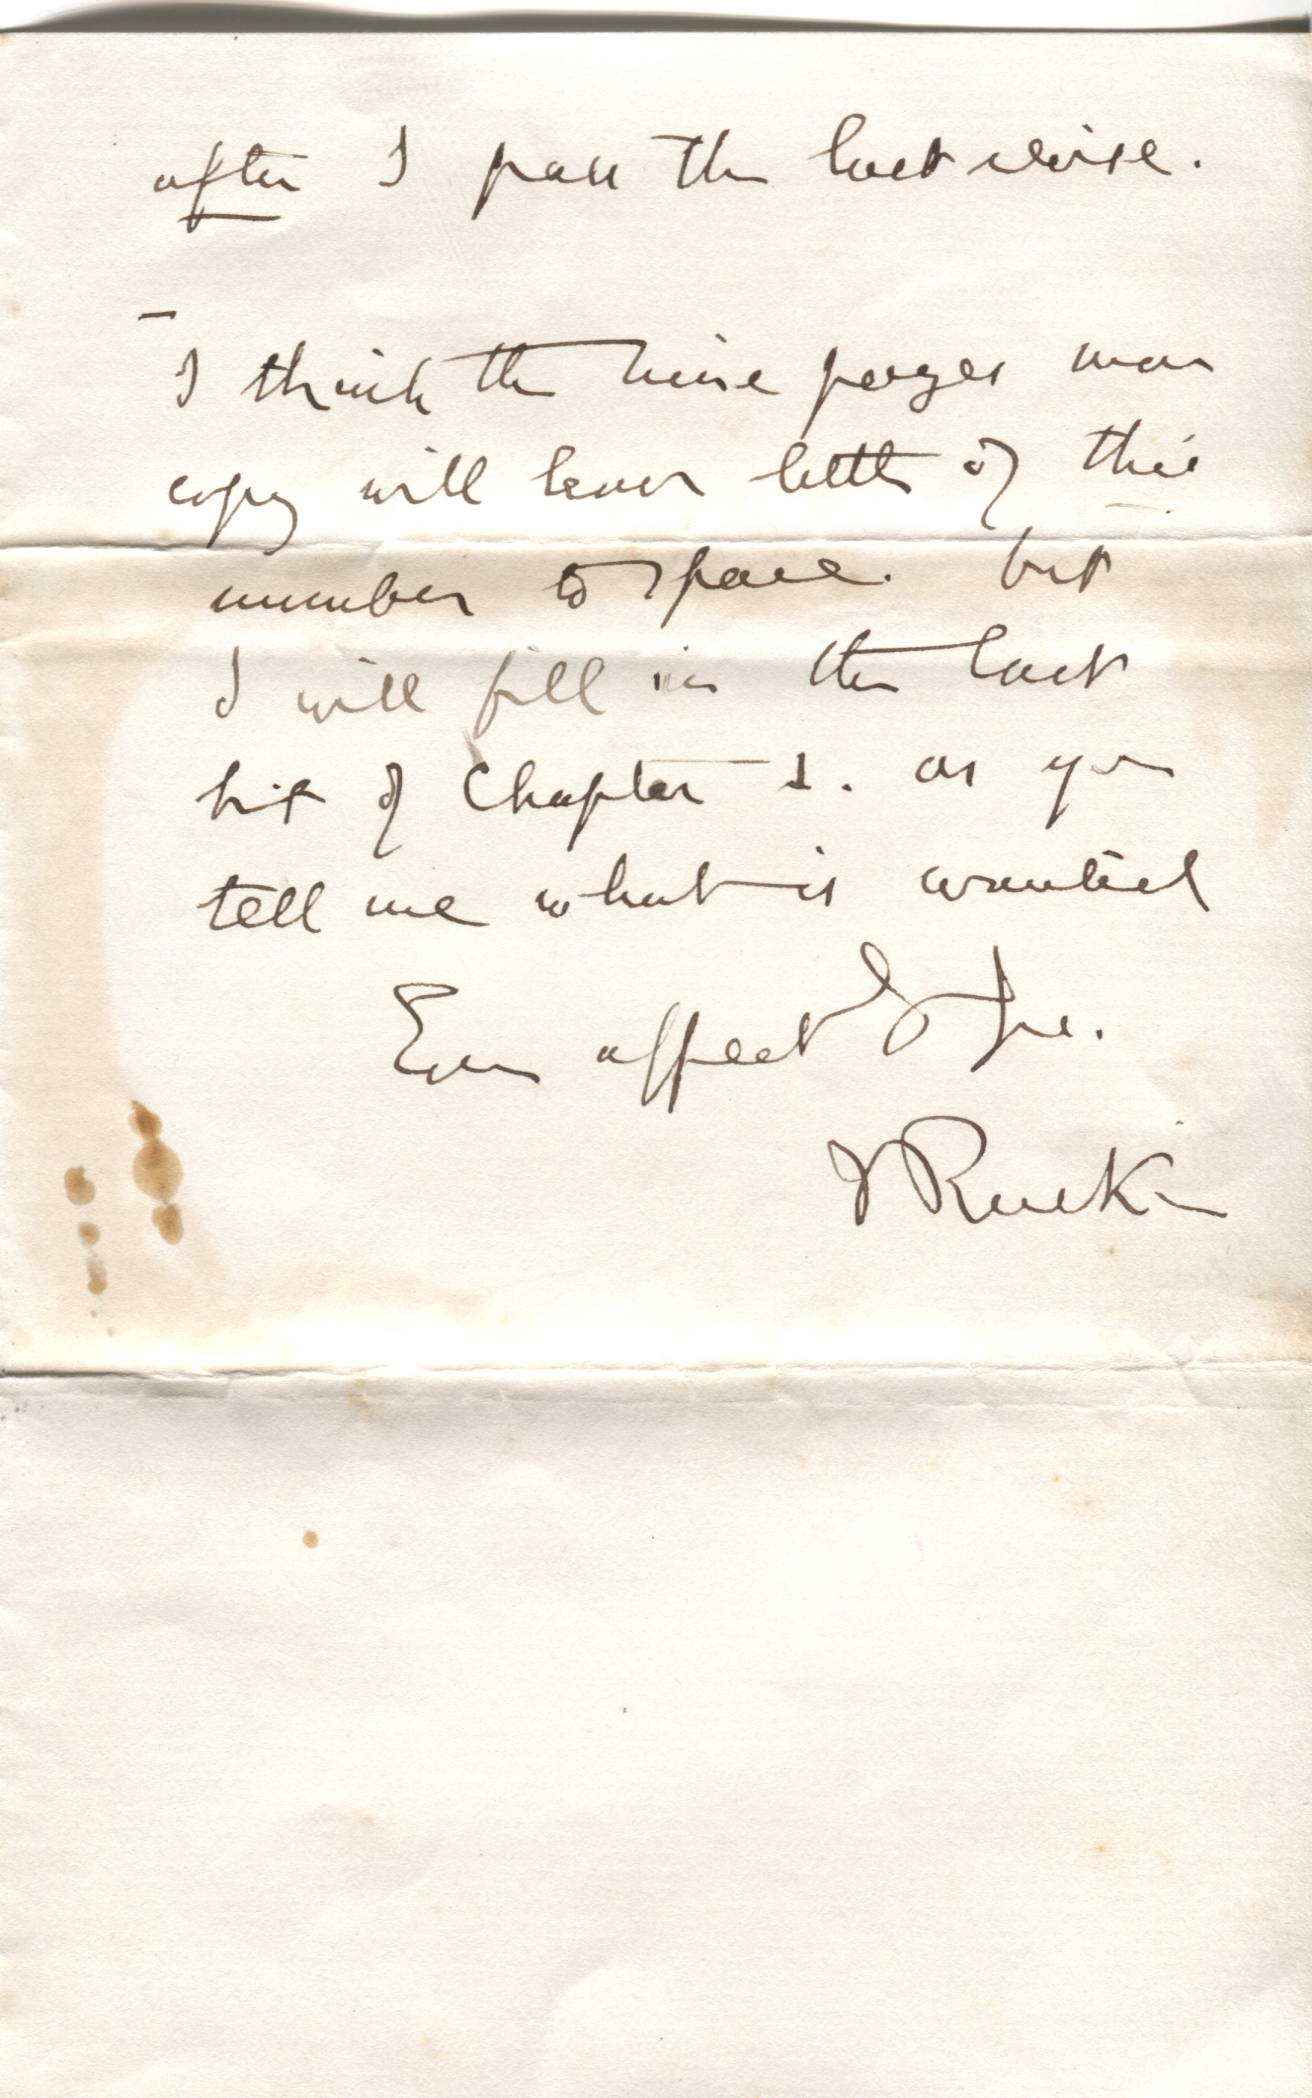 after I pass the last revise.
I think the nine pages more
copy will leave little of this
number to spare. but
I will fill in the last
bit of Chapter 1. as you
tell me what is wanted
Ever affect
J Ruskin